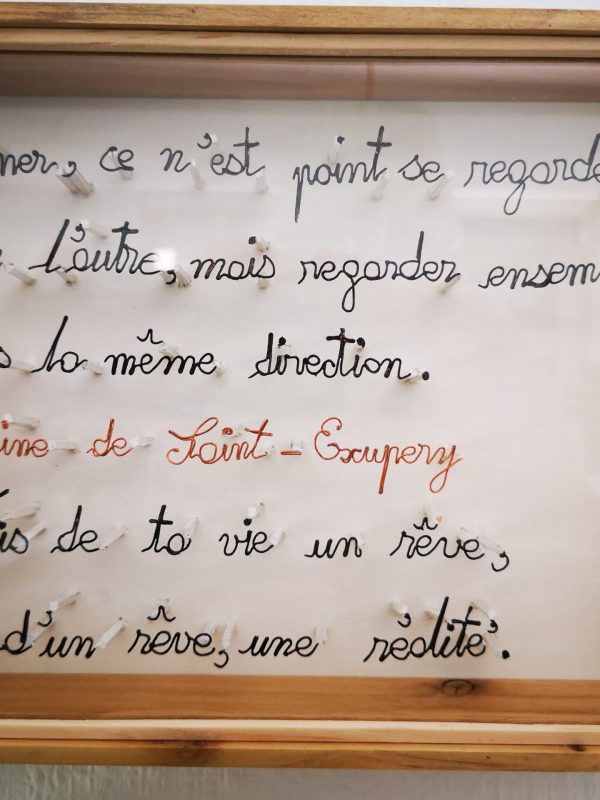 mer, ce n'est point se regarde
l'autre, mais regarder ensem
s la même direction.
ine de Saint-Exupery
is de ta vie un rêve,
d'un rêve, une réalité.